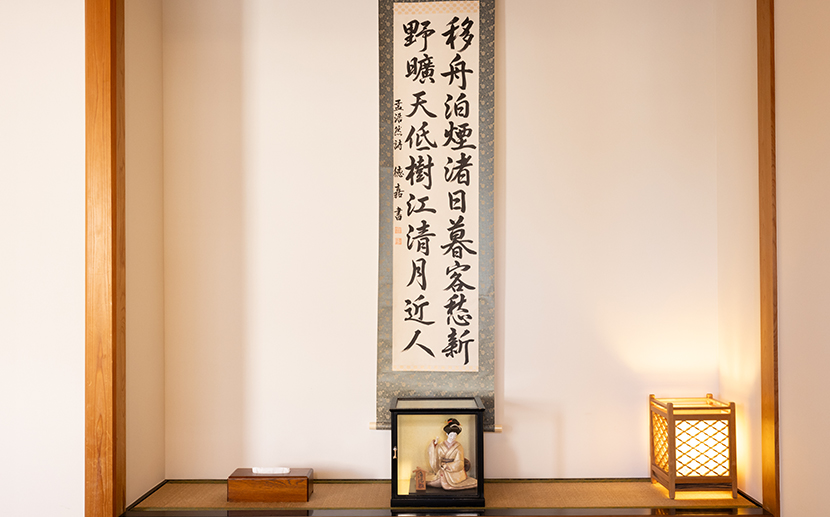 移舟泊煙渚日暮客愁新
野曠天低樹江清月近人
孟浩然詩 徳嘉書